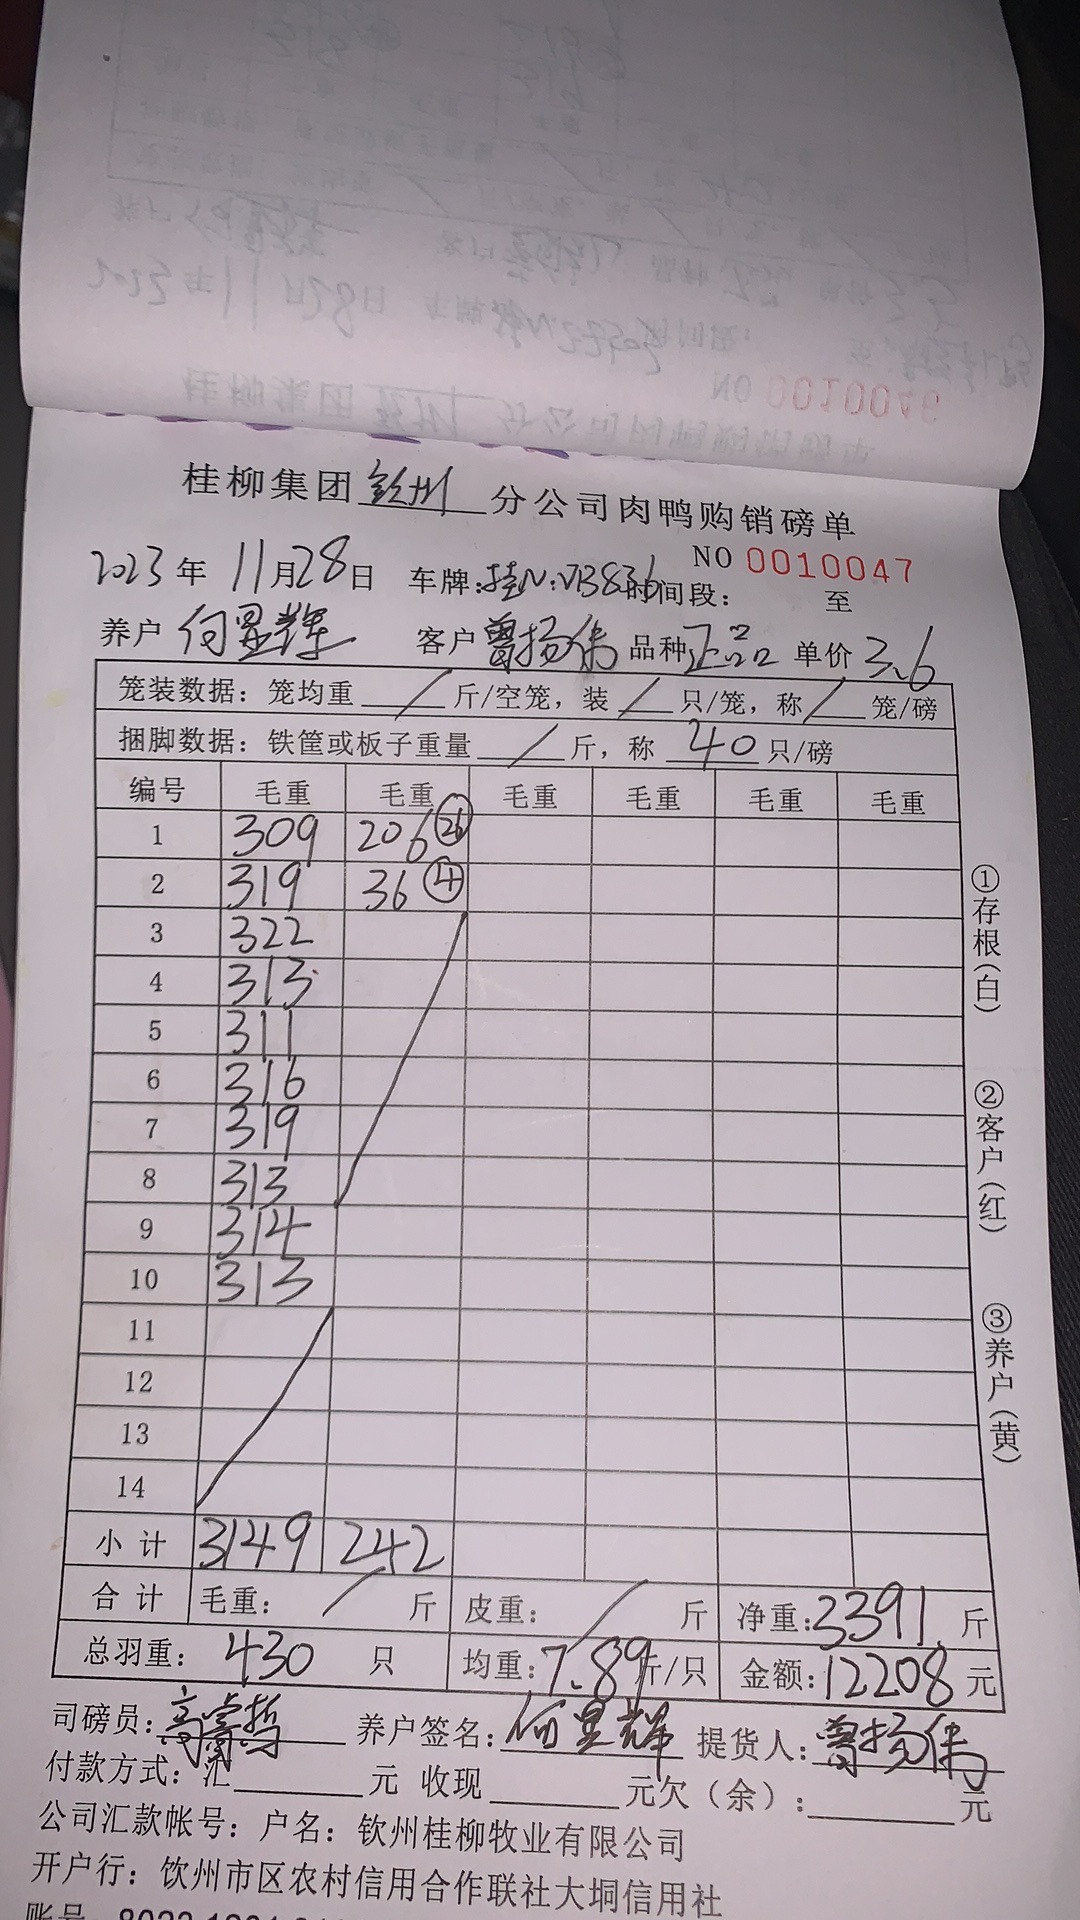 NO 0010046
桂柳集团钦州分公司肉鸭购销磅单
NO 0010047
2023年11月28日 车牌:桂N·VB836 时间段: 至
养户 何昱辉 客户 曾扬伟 品种 正品 单价 3.6
笼装数据: 笼均重 / 斤/空笼, 装 / 只/笼, 称 / 笼/磅
捆脚数据: 铁筐或板子重量 / 斤, 称 40 只/磅
编号 毛重 毛重 毛重 毛重 毛重 毛重
1 309 206 26
2 319 36 4
3 322
4 313
5 311
6 316
7 319
8 313
9 314
10 313
11
12
13
14
小计 3149 242
合计 毛重: / 斤 皮重: / 斤 净重: 3391 斤
总羽重: 430 只 均重: 7.89 斤/只 金额: 12208 元
司磅员: 养户签名: 何昱辉 提货人: 曾扬伟
付款方式: 汇 元 收现 元欠(余): 元
公司汇款帐号: 户名: 钦州桂柳牧业有限公司
开户行: 钦州市区农村信用合作联社大垌信用社
账号
①存根(白)
②客户(红)
③养户(黄)